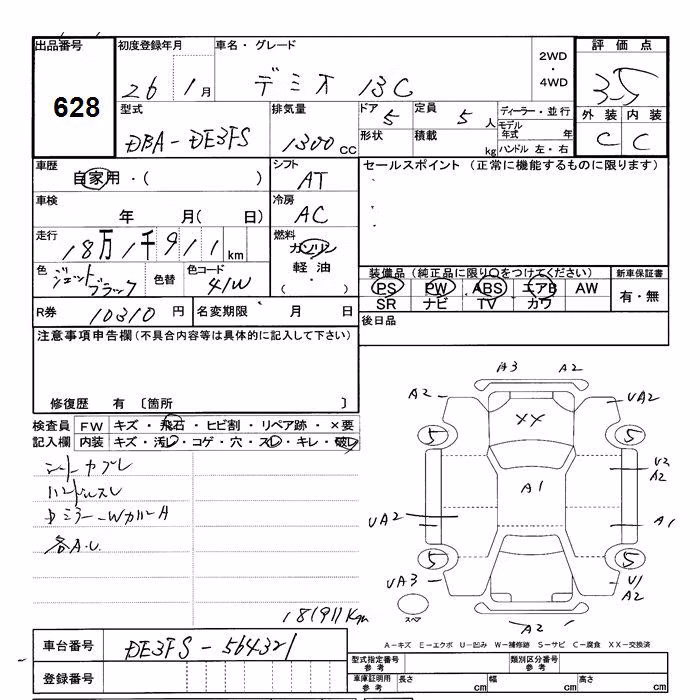 出品番号
628
初度登録年月
26 1月
車名・グレード
デミオ 13C
2WD
・
4WD
評価点
3.5
外装 内装
C C
型式
DBA-DE3FS
排気量
1300 CC
ドア 5
形状
定員 5人
積載 kg
ディーラー・並行
モデル年式 年
ハンドル 左・右
車歴
自家用・( )
シフト
AT
車検
年 月( 日)
冷房
AC
走行
18万1千911 km
燃料
ガソリン
軽油
・( )
色 ジェットブラック
色替
色コード
41W
R券 10310 円
名変期限 月 日
セールスポイント (正常に機能するものに限ります)
装備品(純正品に限り○をつけてください)
PS PW ABS エアB AW
SR ナビ TV カワ
新車保証書
有・無
後日品
注意事項申告欄(不具合内容等は具体的に記入して下さい)
修復歴 有 〔箇所 〕
検査員 FW キズ・飛石・ヒビ割・リペア跡・×要
記入欄 内装 キズ・汚し・コゲ・穴・スレ・キレ・破し
ハンドルスレ
ミラーWカバーA
各A.U.
181911Km
A3 A2
A2 UA2
XX
5 5
A1
U2
A2
UA2 A1
5 5
UA3 U1
A2
スペア
A2
A-キズ E-エクボ U-凹み W-補修跡 S-サビ C-腐食 XX-交換済
車台番号 DE3FS-564321
登録番号
型式指定番号
参考
類別区分番号
参考
車庫証明用
参考
長さ cm 幅 cm 高さ cm